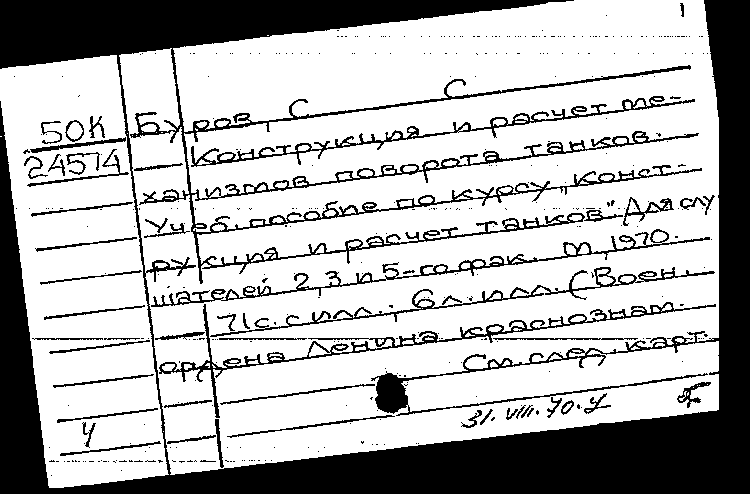 1
50К Буров, С С
24574 Конструкция и расчет ме-
ханизмов поворота танков.
Учеб. пособие по курсу „Конст-
рукция и расчет танков". Для слу
шателей 2, 3 и 5-го фак. М, 1970.
71с. с илл.; 6л. илл. (Воен.
ордена Ленина краснознам.
См. след. карт.
31.VIII.70.